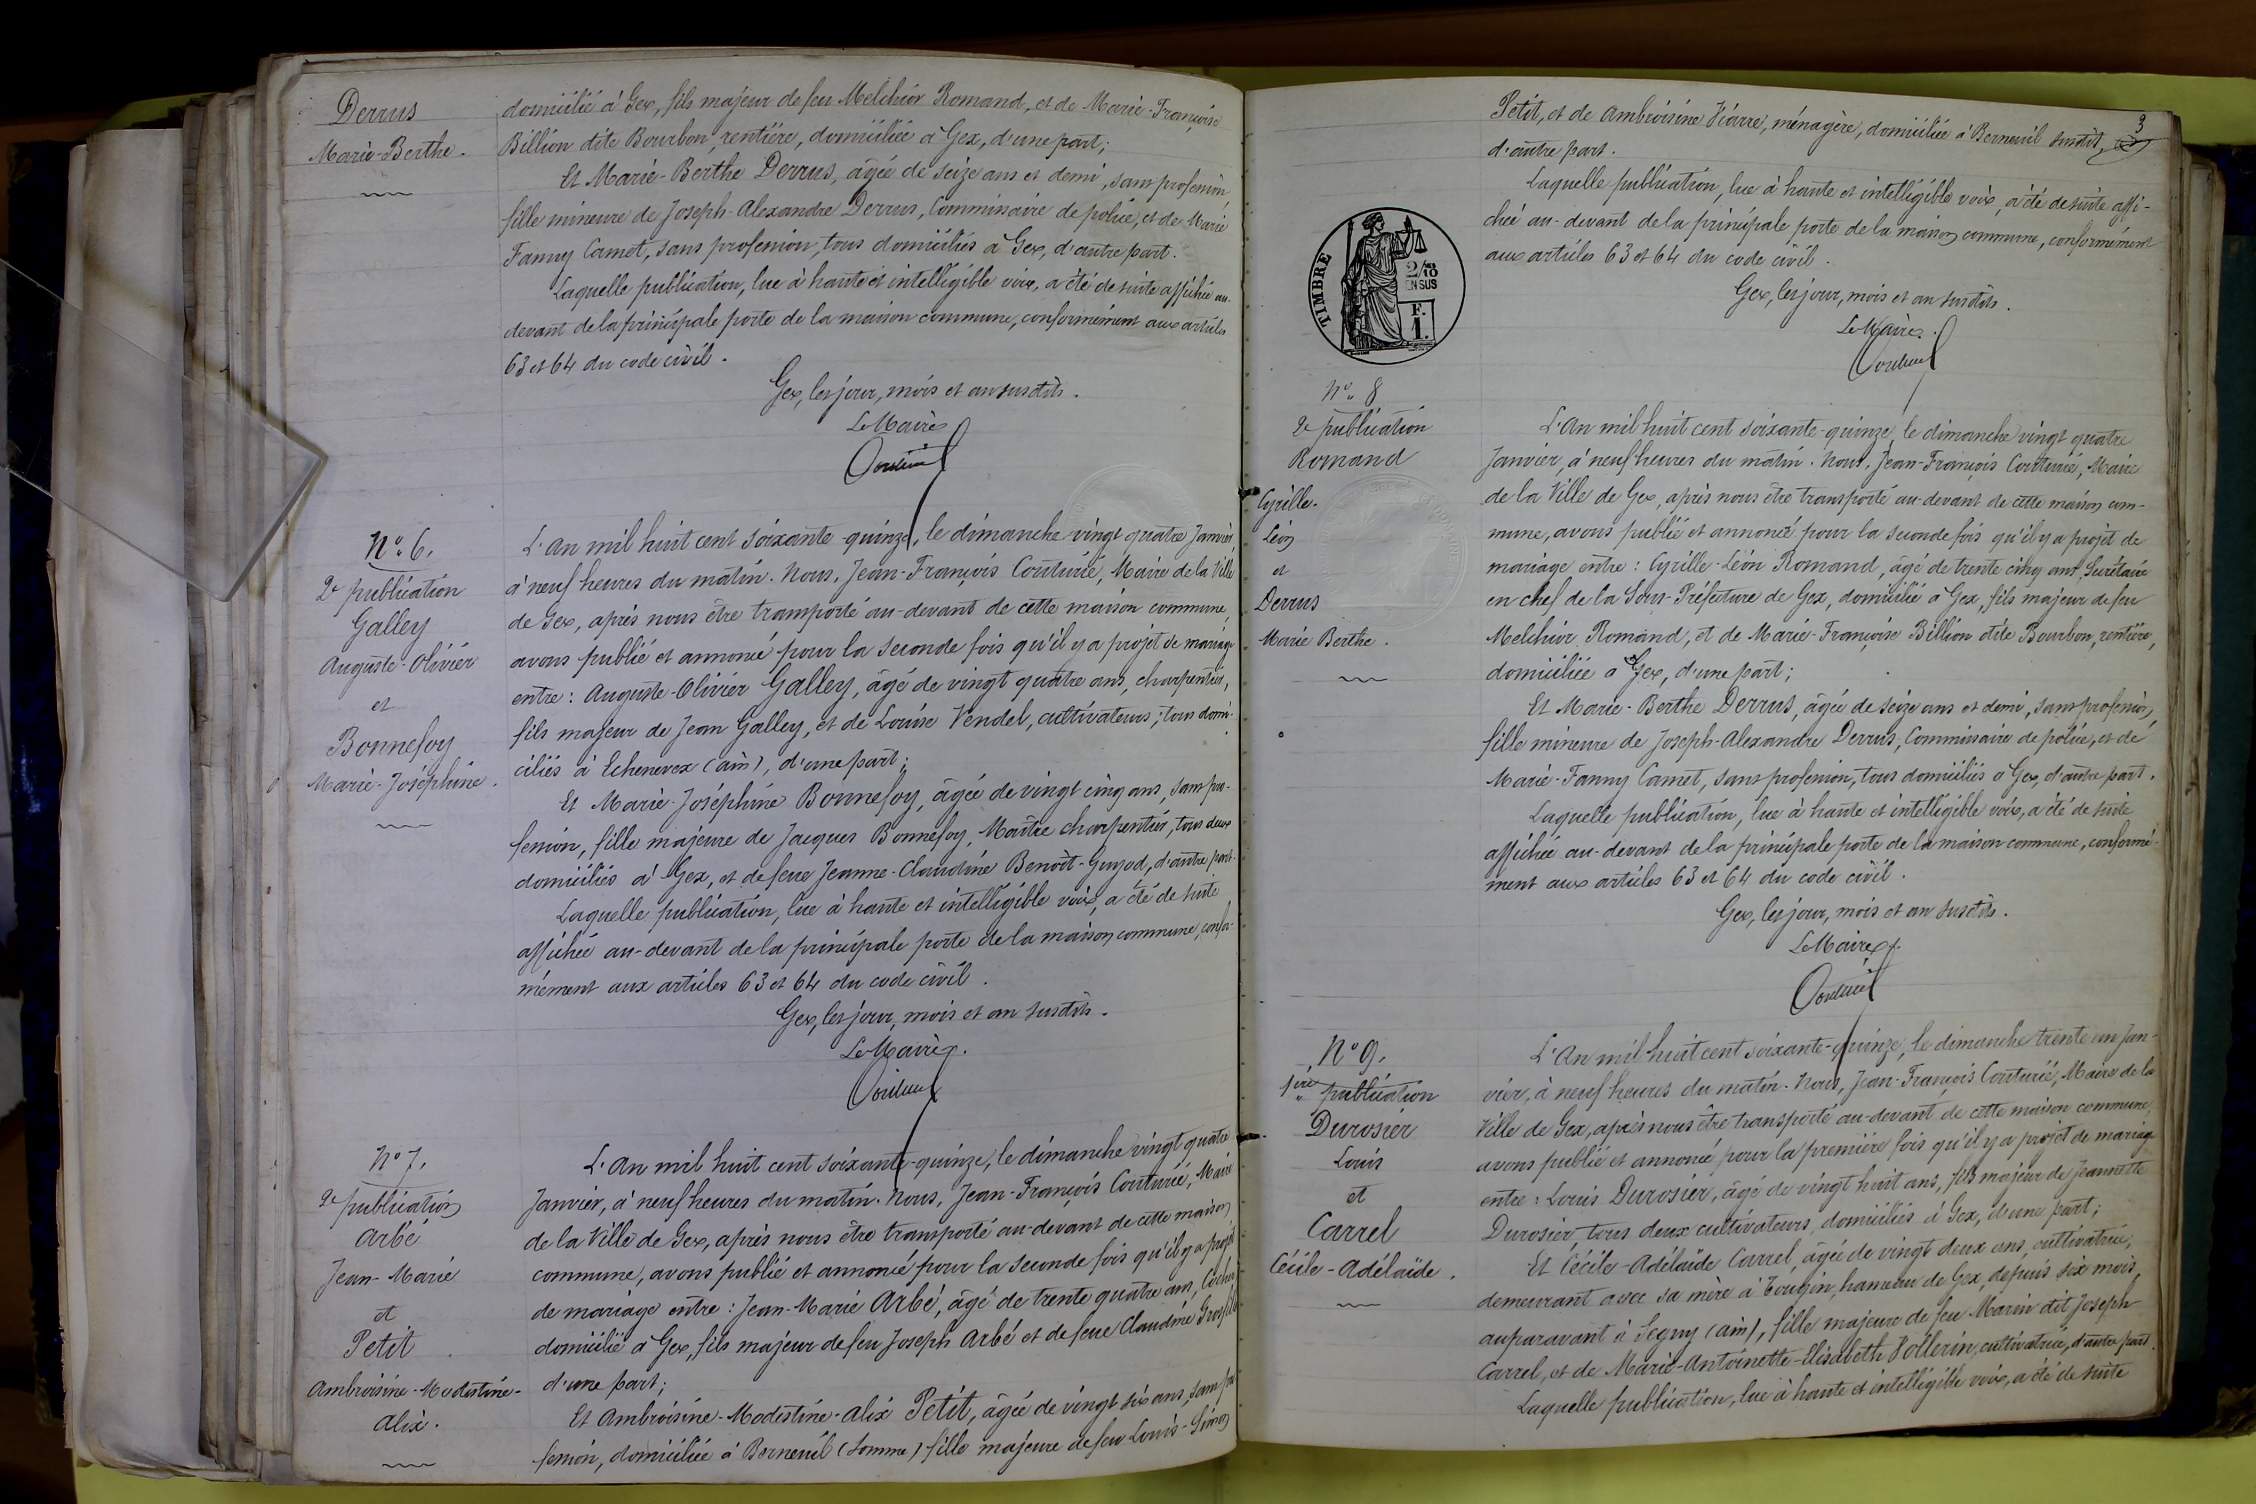 Derrus
Marie-Berthe.
domicilié à Gex, fils majeur de feu Melchior Romand, et de Marie-Françoise
Billion dite Bourbon, rentière, domiciliée à Gex, d'une part;
Et Marie-Berthe Derrus, âgée de seize ans et demi, sans profession,
fille mineure de Joseph-Alexandre Derrus, Commissaire de police, et de Marie
Fanny Camet, sans profession, tous domiciliés à Gex, d'autre part.
Laquelle publication, lue à haute et intelligible voix, a été de suite affichée au-
devant de la principale porte de la maison commune, conformément aux articles
63 et 64 du code civil.
Gex, les jour, mois et an susdits.
Le Maire
Couturié
No 6.
2e publication
Galley
Auguste-Olivier
et
Bonnefoy
Marie-Joséphine.
L'An mil huit cent soixante-quinze, le dimanche vingt quatre Janvier,
à neuf heures du matin. Nous, Jean-François Couturié, Maire de la Ville
de Gex, après nous être transporté au-devant de cette maison commune,
avons publié et annoncé pour la seconde fois qu'il y a projet de mariage
entre: Auguste-Olivier Galley, âgé de vingt quatre ans, charpentier,
fils majeur de Jean Galley, et de Louise Vendel, cultivateurs, tous domi-
ciliés à Echenevex (ain), d'une part;
Et Marie-Joséphine Bonnefoy, âgée de vingt cinq ans, sans pro-
fession, fille majeure de Jacques Bonnefoy, Maître charpentier, tous deux
domiciliés à Gex, et de feue Jeanne-Claudine Benoît-Guyod, d'autre part.
Laquelle publication, lue à haute et intelligible voix, a été de suite
affichée au-devant de la principale porte de la maison commune, confor-
mément aux articles 63 et 64 du code civil.
Gex, les jour, mois et an susdits.
Le Maire.
Couturié
No 7.
2e publication
Arbé
Jean-Marie
et
Petit
Ambroisine-Modestine-
Alix.
L'An mil huit cent soixante-quinze, le dimanche vingt quatre
Janvier, à neuf heures du matin. Nous, Jean-François Couturié, Maire
de la Ville de Gex, après nous être transporté au-devant de cette maison
commune, avons publié et annoncé pour la seconde fois qu'il y a projet
de mariage entre: Jean-Marie Arbé, âgé de trente quatre ans, Cocher
domicilié à Gex, fils majeur de feu Joseph Arbé et de feue Claudine
d'une part;
Et Ambroisine-Modestine-Alix Petit, âgée de vingt six ans, sans pro-
fession, domiciliée à Berneuil (Somme) fille majeure de feu Louis-Simon
3
Petit, et de Ambroisine Viarre, ménagère, domiciliée à Berneuil susdit,
d'autre part.
Laquelle publication, lue à haute et intelligible voix, a été de suite affi-
chée au-devant de la principale porte de la maison commune, conformément
aux articles 63 et 64 du code civil.
Gex, les jour, mois et an susdits.
Le Maire.
Couturié
TIMBRE
2/10
EN SUS
F.
1.
No 8
2e publication
Romand
Cyrille-
Léon
et
Derrus
Marie Berthe.
L'An mil huit cent soixante-quinze, le dimanche vingt quatre
Janvier, à neuf heures du matin. Nous, Jean-François Couturié, Maire
de la Ville de Gex, après nous être transporté au-devant de cette maison com-
mune, avons publié et annoncé pour la seconde fois qu'il y a projet de
mariage entre: Cyrille-Léon Romand, âgé de trente cinq ans, Secrétaire
en chef de la Sous-Préfecture de Gex, domicilié à Gex, fils majeur de feu
Melchior Romand, et de Marie-Françoise Billion dite Bourbon, rentière,
domiciliée à Gex, d'une part;
Et Marie-Berthe Derrus, âgée de seize ans et demi, sans profession,
fille mineure de Joseph-Alexandre Derrus, Commissaire de police, et de
Marie-Fanny Camet, sans profession, tous domiciliés à Gex, d'autre part.
Laquelle publication, lue à haute et intelligible voix, a été de suite
affichée au-devant de la principale porte de la maison commune, conformé-
ment aux articles 63 et 64 du code civil.
Gex, les jour, mois et an susdits.
Le Maire.
Couturié
No 9.
1ère publication
Durosier
Louis
et
Carrel
Cécile-Adélaïde.
L'An mil huit cent soixante-quinze, le dimanche trente un Jan-
vier, à neuf heures du matin. Nous, Jean-François Couturié, Maire de la
Ville de Gex, après nous être transporté au-devant de cette maison commune,
avons publié et annoncé pour la première fois qu'il y a projet de mariage
entre: Louis Durosier, âgé de vingt huit ans, fils majeur de Jeannette
Durosier, tous deux cultivateurs, domiciliés à Gex, d'une part;
Et Cécile-Adélaïde Carrel, âgée de vingt deux ans, cultivatrice,
demeurant avec sa mère à Tougin, hameau de Gex, depuis six mois,
auparavant à Segny (ain), fille majeure de feu Marin dit Joseph
Carrel, et de Marie-Antoinette-Elisabeth Vollerin, cultivatrice, d'autre part.
Laquelle publication, lue à haute et intelligible voix, a été de suite